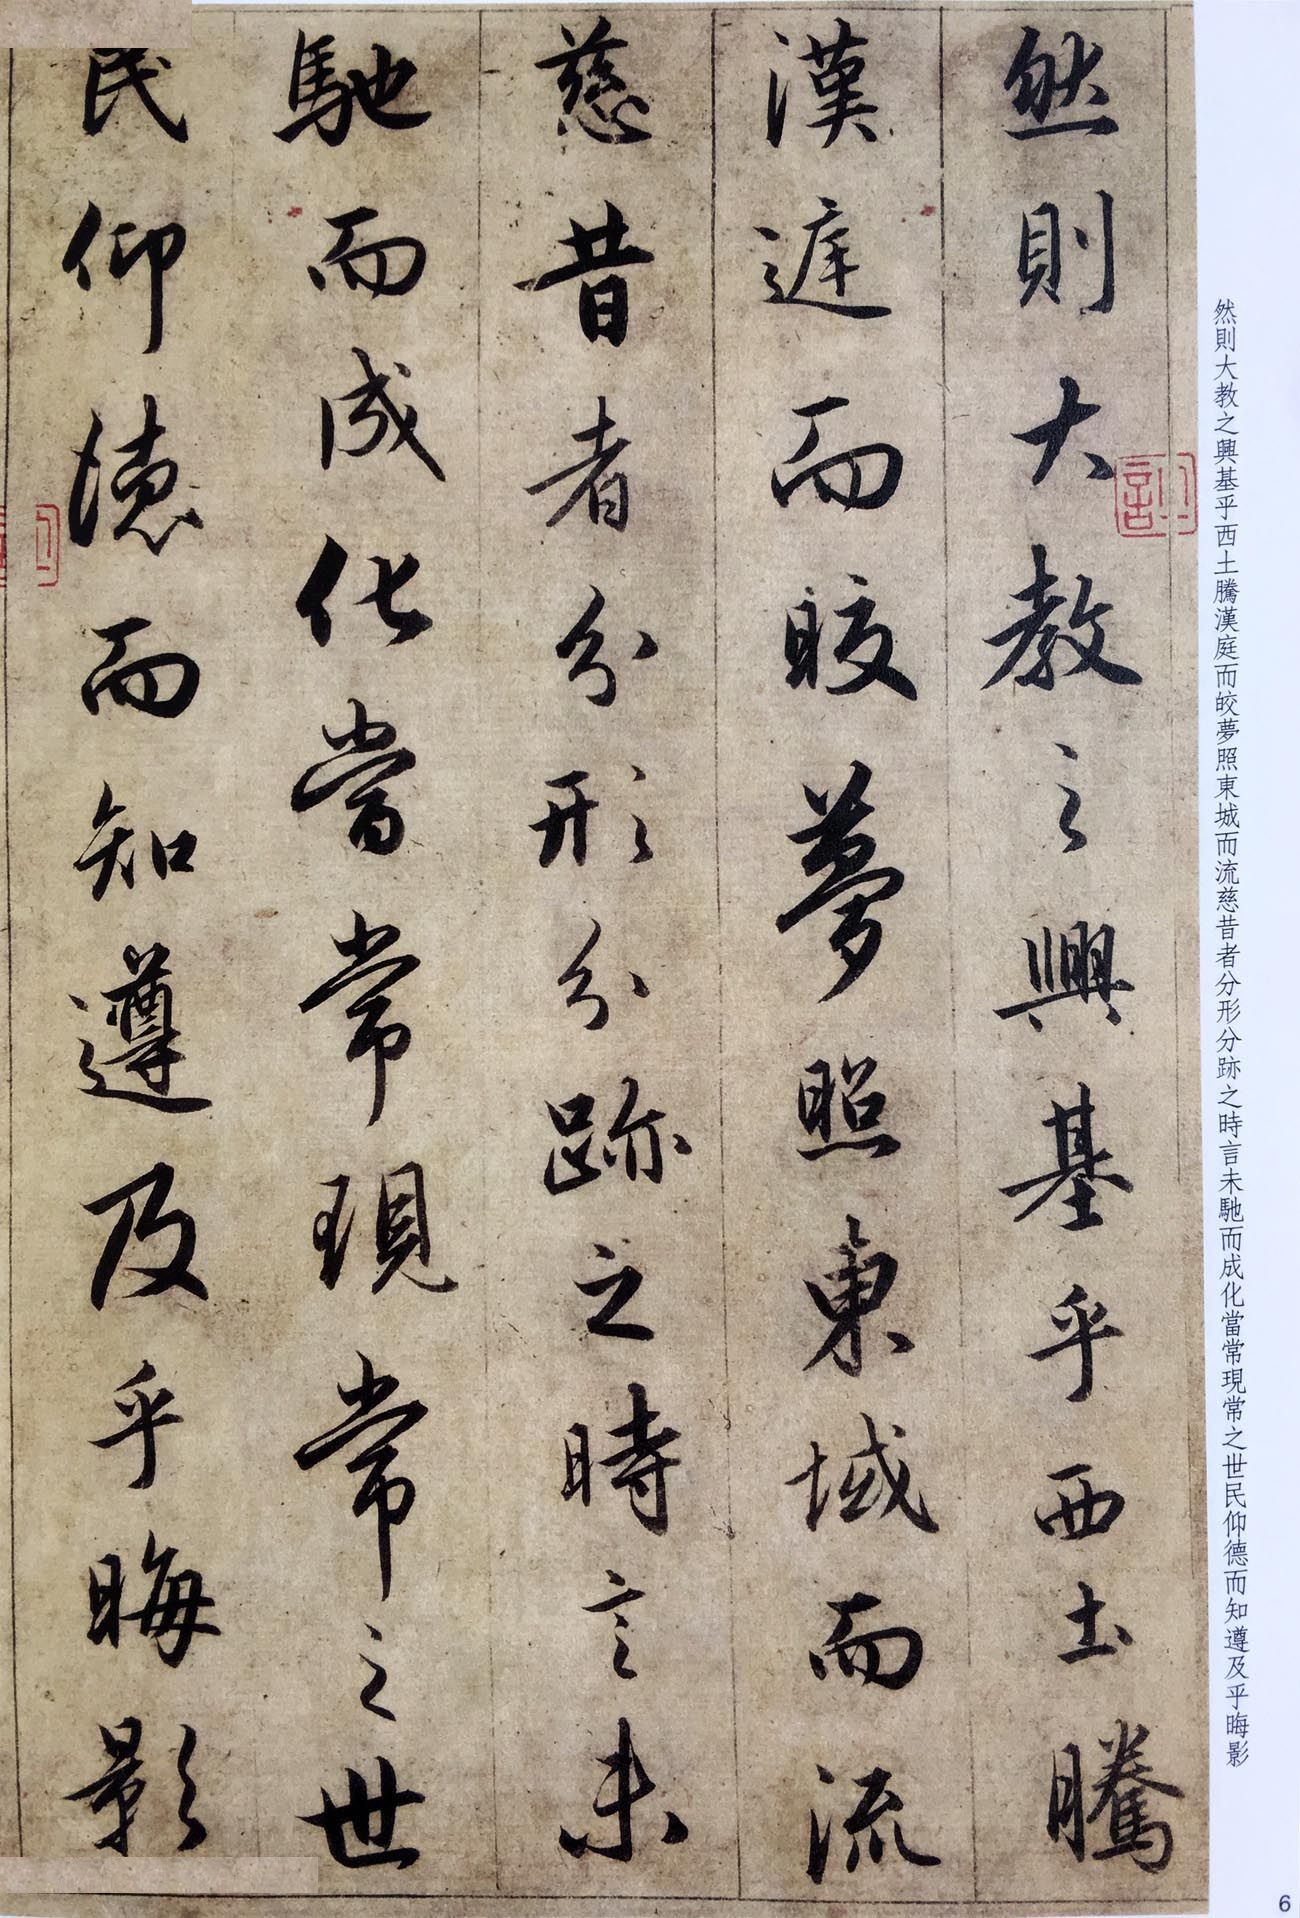 然則大教之興基乎西土騰
漢遅而皎夢照東域而流
慈昔者分形分跡之時言未
馳而成化當常現常之世
民仰德而知遵及乎晦影
然則大教之興基乎西土騰漢庭而皎夢照東城而流慈昔者分形分跡之時言未馳而成化當常現常之世民仰德而知遵及乎晦影
6